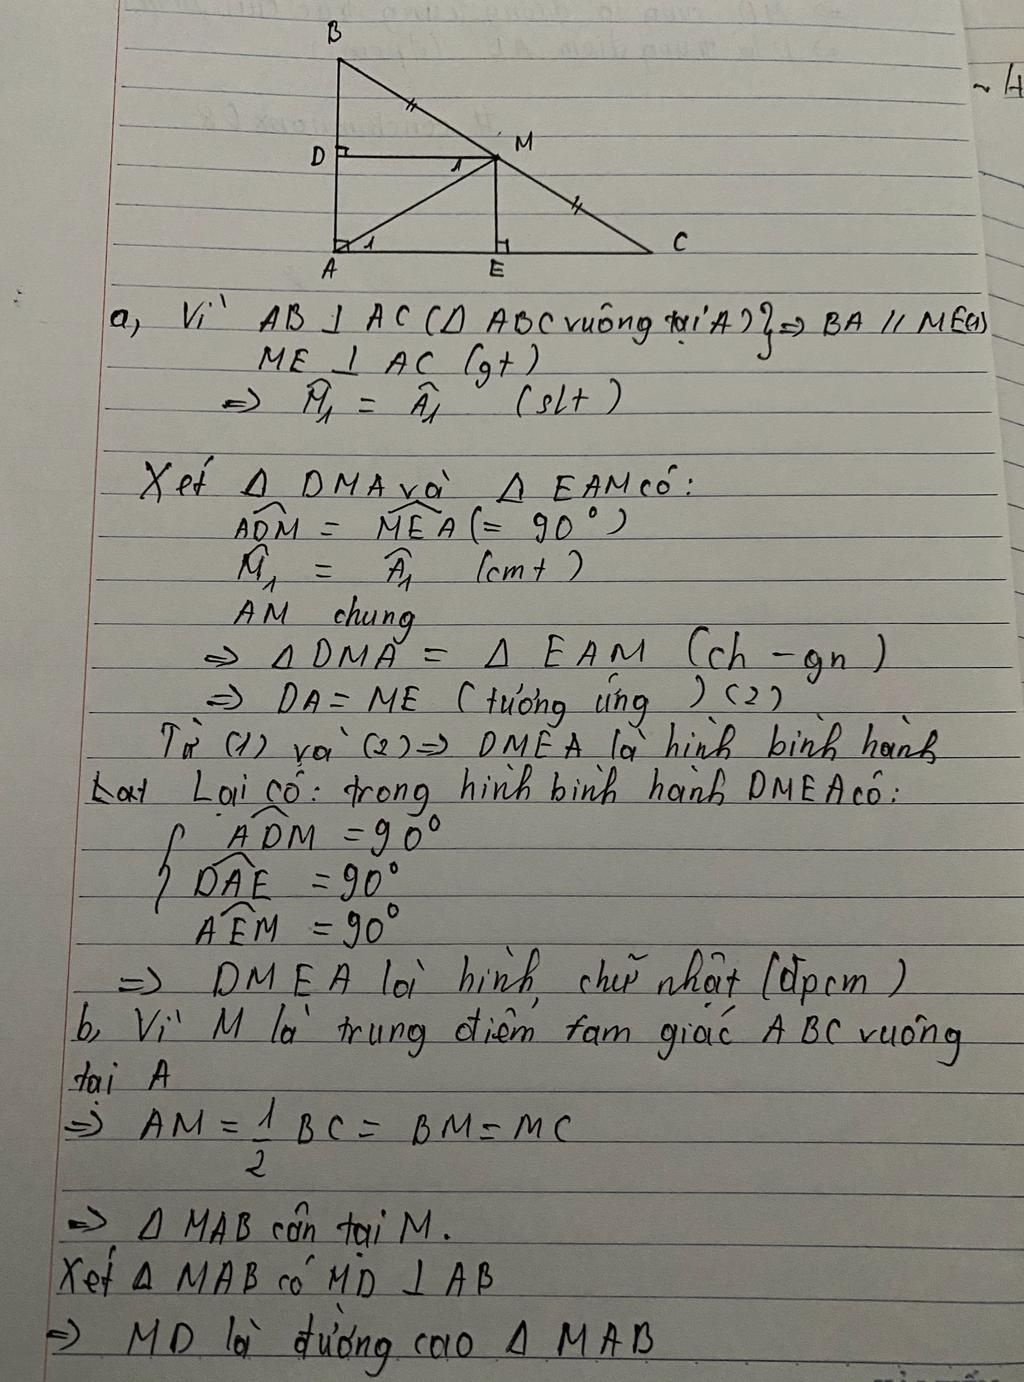 B
D
M
1
1
A
E
C
a, Vì AB ⊥ AC (Δ ABC vuông tại A) } => BA // ME(1)
ME ⊥ AC (gt)
=> M̂₁ = Â₁ (slt)
Xét Δ DMA và Δ EAM có:
ADM̂ = MEÂ (= 90°)
M̂₁ = Â₁ (cmt)
AM chung
=> Δ DMA = Δ EAM (ch - gn)
=> DA = ME (tương ứng) (2)
Từ (1) và (2) => DMEA là hình bình hành
Lại có: trong hình bình hành DMEA có:
{ ADM̂ = 90°
DAÊ = 90°
AEM̂ = 90°
=> DMEA là hình chữ nhật (đpcm)
b, Vì M là trung điểm tam giác ABC vuông
tại A
=> AM = 1/2 BC = BM = MC
=> Δ MAB cân tại M.
Xét Δ MAB có MD ⊥ AB
=> MD là đường cao Δ MAB